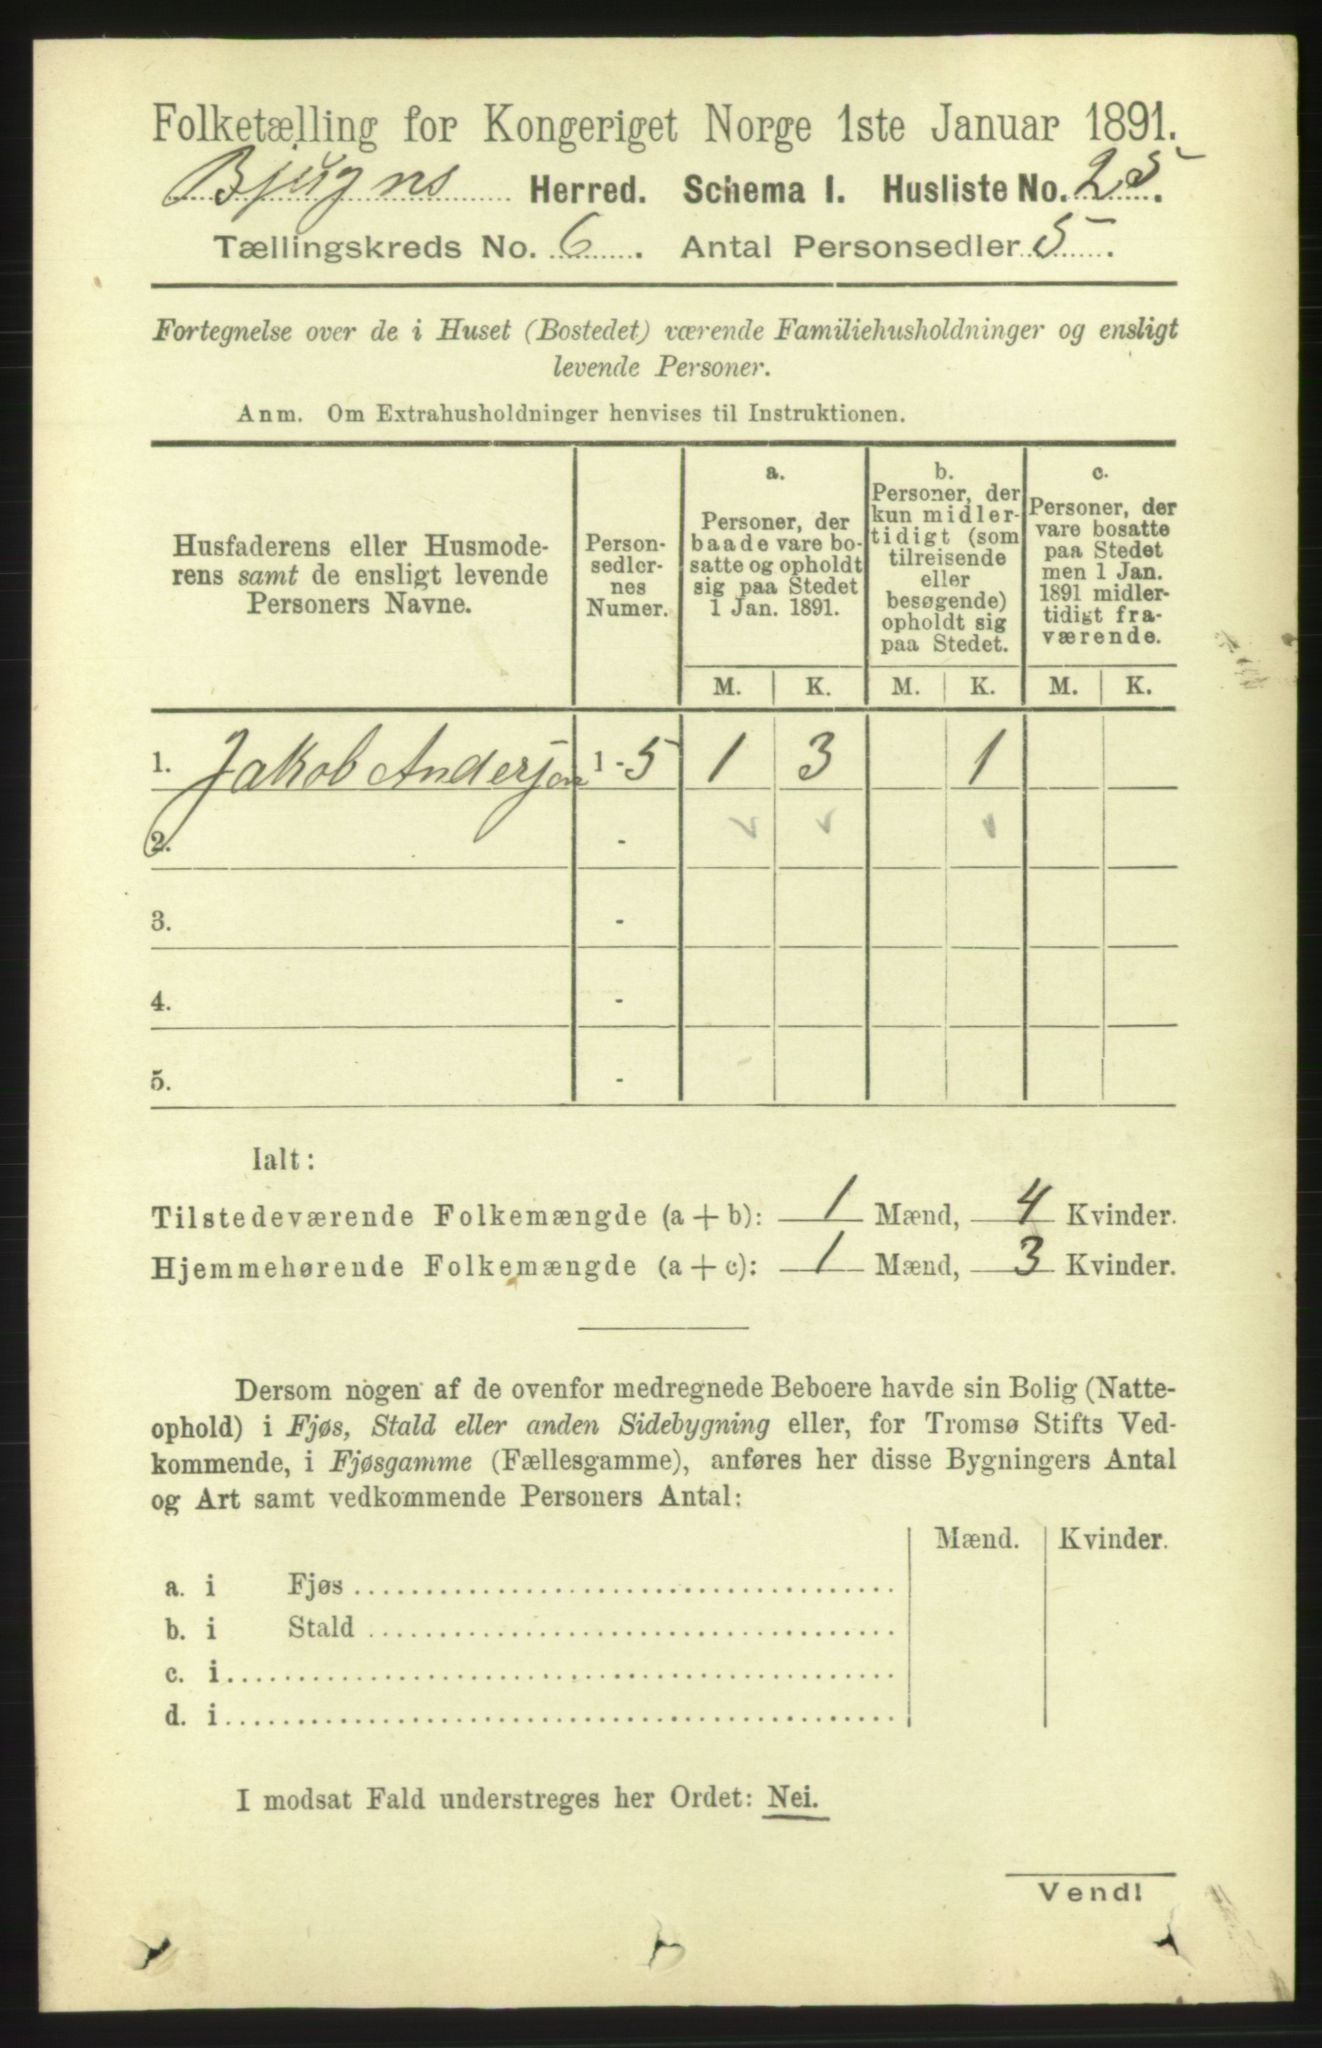 Folketælling for Kongeriget Norge 1ste Januar 1891.
Bjugns Herred. Schema I. Husliste No. 25.
Tællingskreds No. 6. Antal Personsedler 5.
Fortegnelse over de i Huset (Bostedet) værende Familiehusholdninger og ensligt
levende Personer.
Anm. Om Extrahusholdninger henvises til Instruktionen.
Husfaderens eller Husmode-
rens samt de ensligt levende
Personers Navne.
Person-
sedler-
nes
Numer.
a.
Personer, der
baade vare bo-
satte og opholdt
sig paa Stedet
1 Jan. 1891.
b.
Personer, der
kun midler-
tidigt (som
tilreisende
eller
besøgende)
opholdt sig
paa Stedet.
c.
Personer, der
vare bosatte
paa Stedet
men 1 Jan.
1891 midler-
tidigt fra-
værende.
M. K. M. K. M. K.
1. Jakob Andersen 1-5 1 3 1
2. -
3. -
4. -
5. -
Ialt:
Tilstedeværende Folkemængde (a + b): 1 Mænd, 4 Kvinder.
Hjemmehørende Folkemængde (a + c): 1 Mænd, 3 Kvinder.
Dersom nogen af de ovenfor medregnede Beboere havde sin Bolig (Natte-
ophold) i Fjøs, Stald eller anden Sidebygning eller, for Tromsø Stifts Ved-
kommende, i Fjøsgamme (Fællesgamme), anføres her disse Bygningers Antal
og Art samt vedkommende Personers Antal:
Mænd. Kvinder.
a. i Fjøs
b. i Stald
c. i
d. i
I modsat Fald understreges her Ordet: Nei.
Vend!